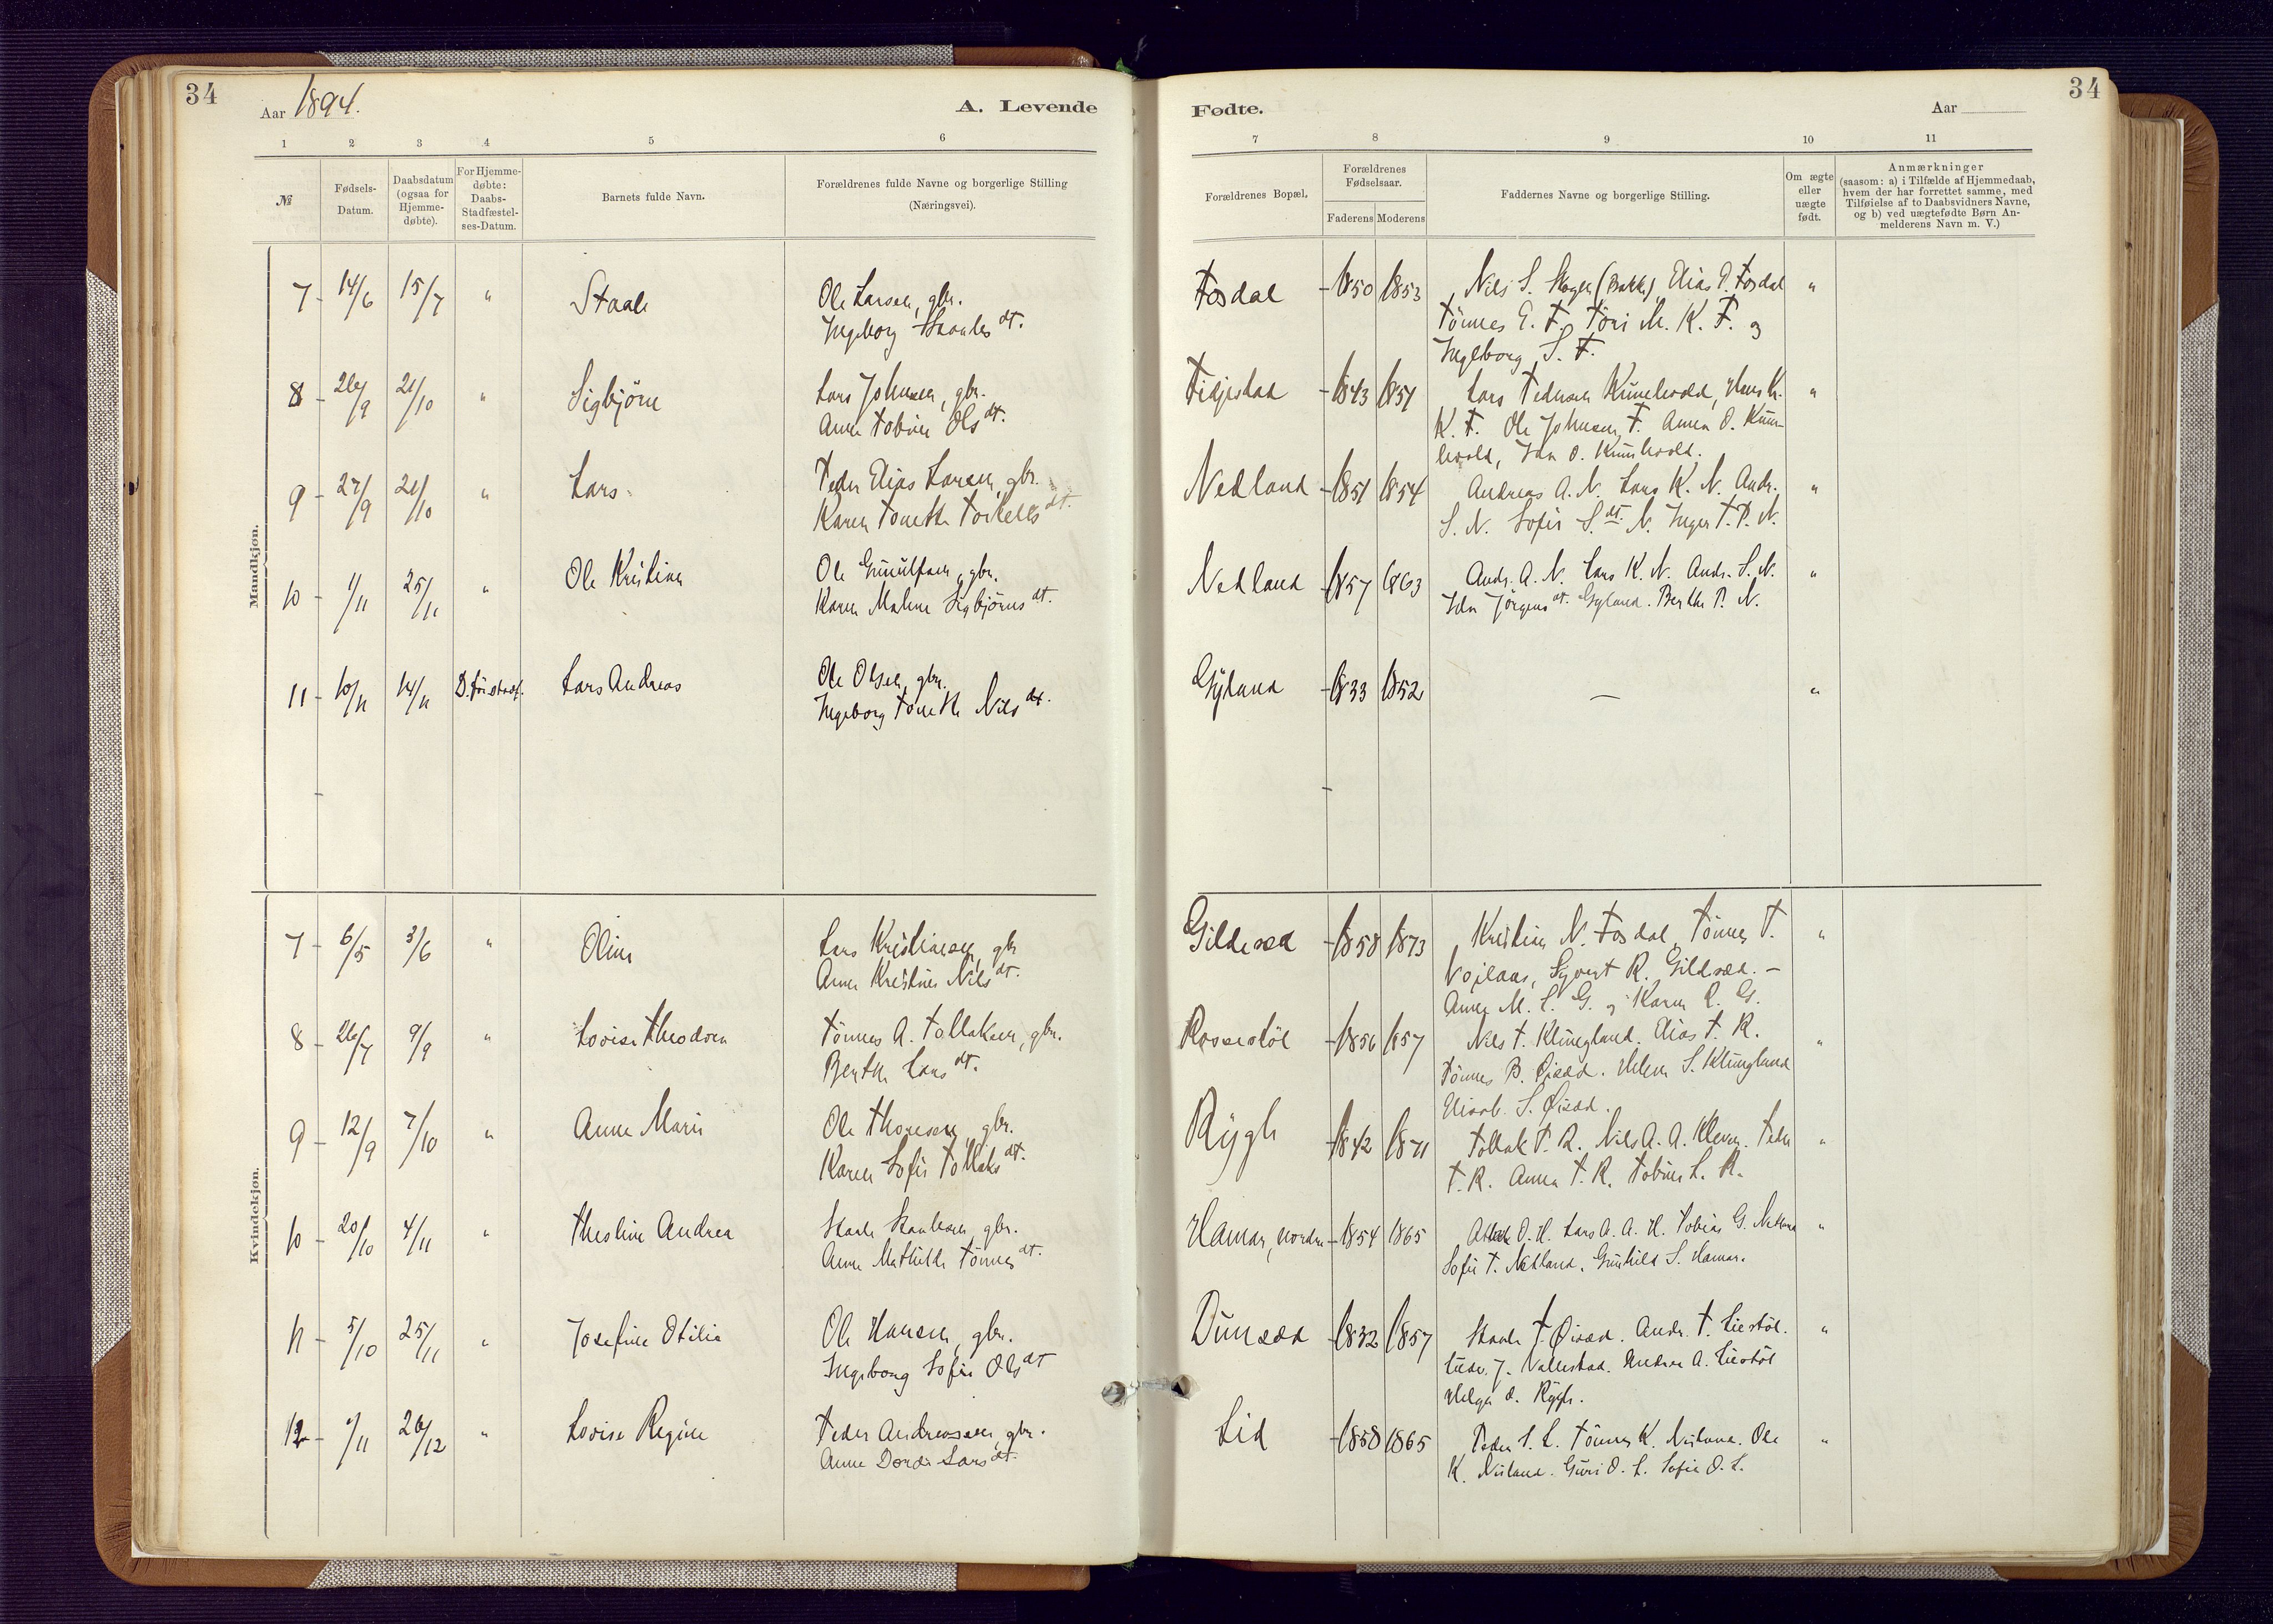 34
Aar 1894.
A. Levende
Fødte.
Aar
34
1 2 3 4 5 6 7 8 9 10 11
№
Fødsels-
Datum.
Daabsdatum
(ogsaa for
Hjemme-
døbte).
For Hjemme-
døbte:
Daabs-
Stadfæstel-
ses-Datum.
Barnets fulde Navn.
Forældrenes fulde Navne og borgerlige Stilling
(Næringsvei).
Forældrenes Bopæl.
Forældrenes
Fødselsaar.
Faderens Moderens
Faddernes Navne og borgerlige Stilling.
Om ægte
eller
uægte
født.
Anmærkninger
(saasom: a) i Tilfælde af Hjemmedaab,
hvem der har forrettet samme, med
Tilføielse af to Daabsvidners Navne,
og b) ved uægtefødte Børn An-
melderens Navn m. V.)
Mandkjøn.
7 - 14/6 15/7 " Staale Ole Larsen, gbr. Fosdal - 1850 1853 Nils S. (Bakke) Elias P. Fosdal "
Ingeborg Staales dt. Tönnes E. F. Töri M. K. F. og
Ingeborg S. F.
8 - 26/9 21/10 " Sigbjörn Lars Johnsen, gbr. Fidjestad - 1843 1851 Lars Pedersen Kunehvold, Hans K. "
Anne Tobine Ols dt. K. F. Ole Johnsen F. Anna O. Kun-
hvold, Ida O. Kunhvold.
9 - 27/9 21/10 " Lars Peder Elias Larsen, gbr. Nedland - 1851 1854 Andreas A. N. Lars K. N. Andr. "
Karen Tonette Torkels dt. S. N. Sofie S. dt. N. Inger T. P. N.
10 - 1/11 25/11 " Ole Kristian Ole Gunulfsen, gbr. Nedland - 1857 1863 Andr. A. N. Lars K. N. Andr. S. N. "
Karen Malene Sigbjörns dt. Ida Jörgens dt. Gyland. Berthe P. N.
11 - 10/11 14/11 D. för stadf. Lars Andreas Ole Olsen, gbr. Gyland - 1833 1852 — "
Ingeborg Tonette Nils dt.
Kvindekjøn.
7 - 6/5 3/6 " Oline Lars Kristiansen, gbr Gildesæd - 1858 1873 Kristian N. Fosdal, Tönnes T. "
Anne Kristine Nils dt. Vojlaas, Syvert R. Gildsæd. -
Anne M. L. G. og Karen R. G.
8 - 26/7 9/9 " Lovise Theodora Tönnes A. Tollaksen, gbr. Rossestöl - 1856 1857 Nils T. Klungland. Elias T. R. "
Berthe Lars dt. Tönnes B. Öisæd. Helene S. Klungland
Elisab. S. Öisæd.
9 - 12/9 7/10 " Anne Marie Ole Thomesen, gbr. Rygh - 1842 1871 Tollak T. R. Nils A. A. Kleven. Peder "
Karen Sofie Tollaks dt. T. R. Anna T. R. Tobine L. R.
10 - 20/10 4/11 " Thesline Andrea Staale Staalesen, gbr. Hamar, nordre - 1854 1865 Atlak O. H. Lars A. A. H. Tobias G. Nedland "
Anne Mathilde Tönnes dt. Sofie T. Nedland. Gunhild S. Hamar.
11 - 5/10 25/11 " Josefine Otilie Ole Hansen, gbr. Dunsæd - 1832 1857 Staale T. Öisæd. Andr. T. Liestöl. "
Ingeborg Sofie Ols dt J. Vallestad. Andrea A. Liestöl
Helga O. Rygh.
12 - 1/11 26/12 " Lovise Regine Peder Andreassen, gbr. Lid - 1858 1865 Peder S. L. Tönnes K. Nuland. Ole "
Anne Dorde Lars dt. K. Nuland. Guri O. L. Sofie O. L.